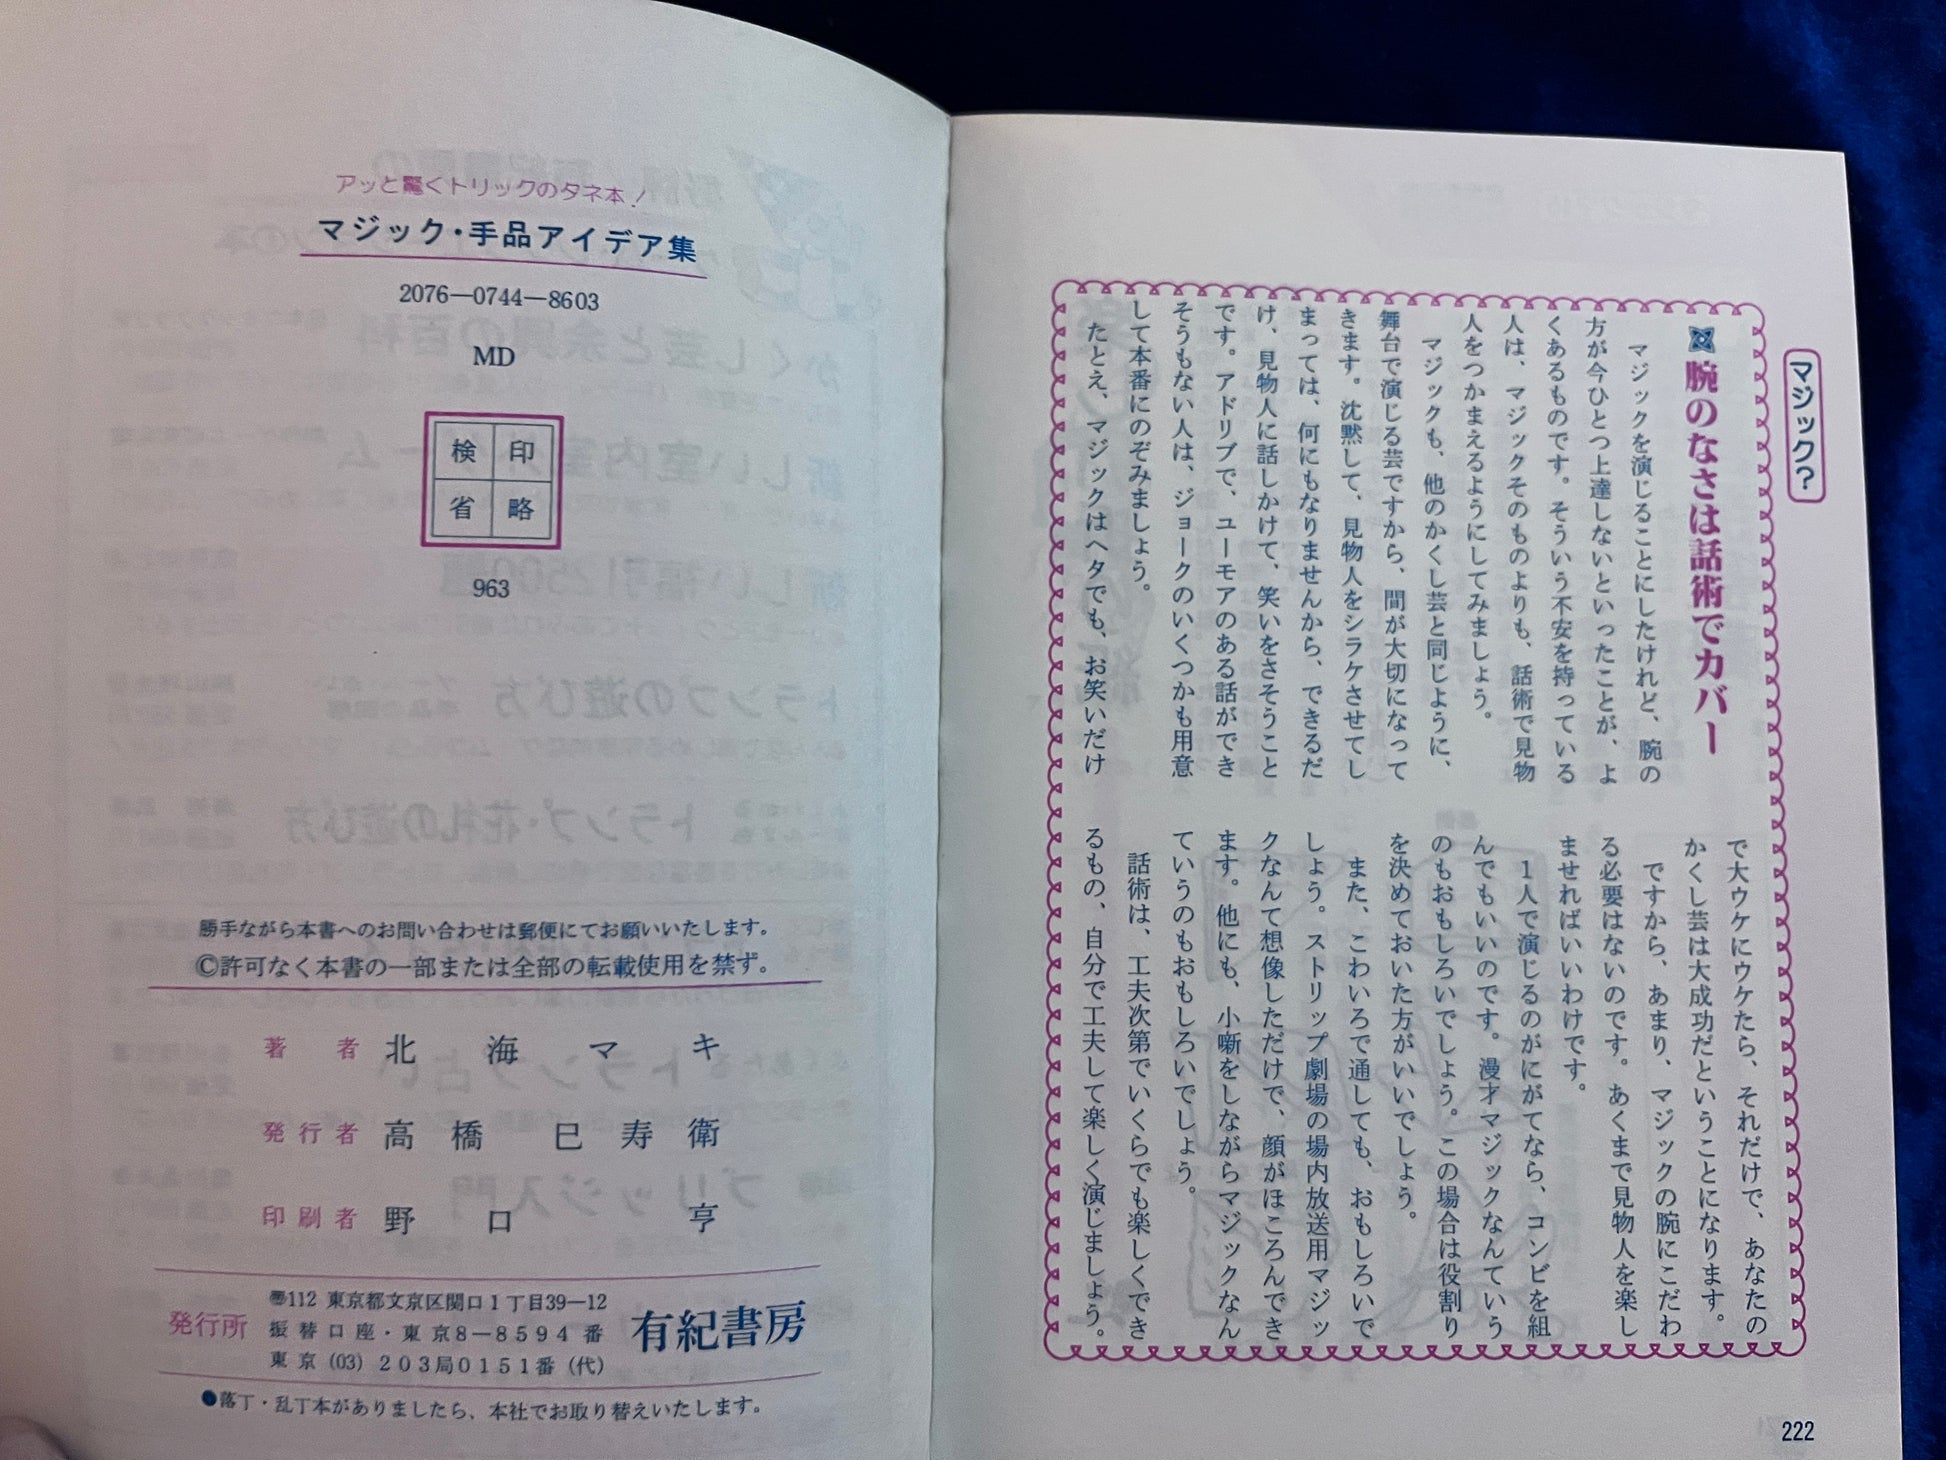 マジック?
腕のなさは話術でカバー
マジックを演じることにしたけれど、腕の
方が今ひとつ上達しないといったことが、よ
くあるものです。そういう不安を持っている
人は、マジックそのものよりも、話術で見物
人をつかまえるようにしてみましょう。
マジックも、他のかくし芸と同じように、
舞台で演じる芸ですから、間が大切になって
きます。沈黙して、見物人をシラケさせてし
まっては、何にもなりませんから、できるだ
け、見物人に話しかけて、笑いをさそうこと
です。アドリブで、ユーモアのある話ができ
そうもない人は、ジョークのいくつかも用意
して本番にのぞみましょう。
たとえ、マジックはヘタでも、お笑いだけ
で大ウケにウケたら、それだけで、あなたの
かくし芸は大成功だということになります。
ですから、あまり、マジックの腕にこだわ
る必要はないのです。あくまで見物人を楽し
ませればいいわけです。
1人で演じるのがにがてなら、コンビを組
んでもいいのです。漫才マジックなんていう
のもおもしろいでしょう。この場合は役割り
を決めておいた方がいいでしょう。
また、こわいろで通しても、おもしろいで
しょう。ストリップ劇場の場内放送用マジッ
クなんて想像しただけで、顔がほころんでき
ます。他にも、小噺をしながらマジックなん
ていうのもおもしろいでしょう。
話術は、工夫次第でいくらでも楽しくでき
るもの、自分で工夫して楽しく演じましょう。
222
アッと驚くトリックのタネ本!
マジック・手品アイデア集
2076—0744—8603
MD
検印
省略
963
勝手ながら本書へのお問い合わせは郵便にてお願いいたします。
©許可なく本書の一部または全部の転載使用を禁ず。
著者 北海マキ
発行者 高橋巳寿衛
印刷者 野口亨
発行所 有紀書房
〠112 東京都文京区関口1丁目39—12
振替口座・東京8—8594番
東京(03)203局0151番(代)
●落丁・乱丁本がありましたら、本社でお取り替えいたします。